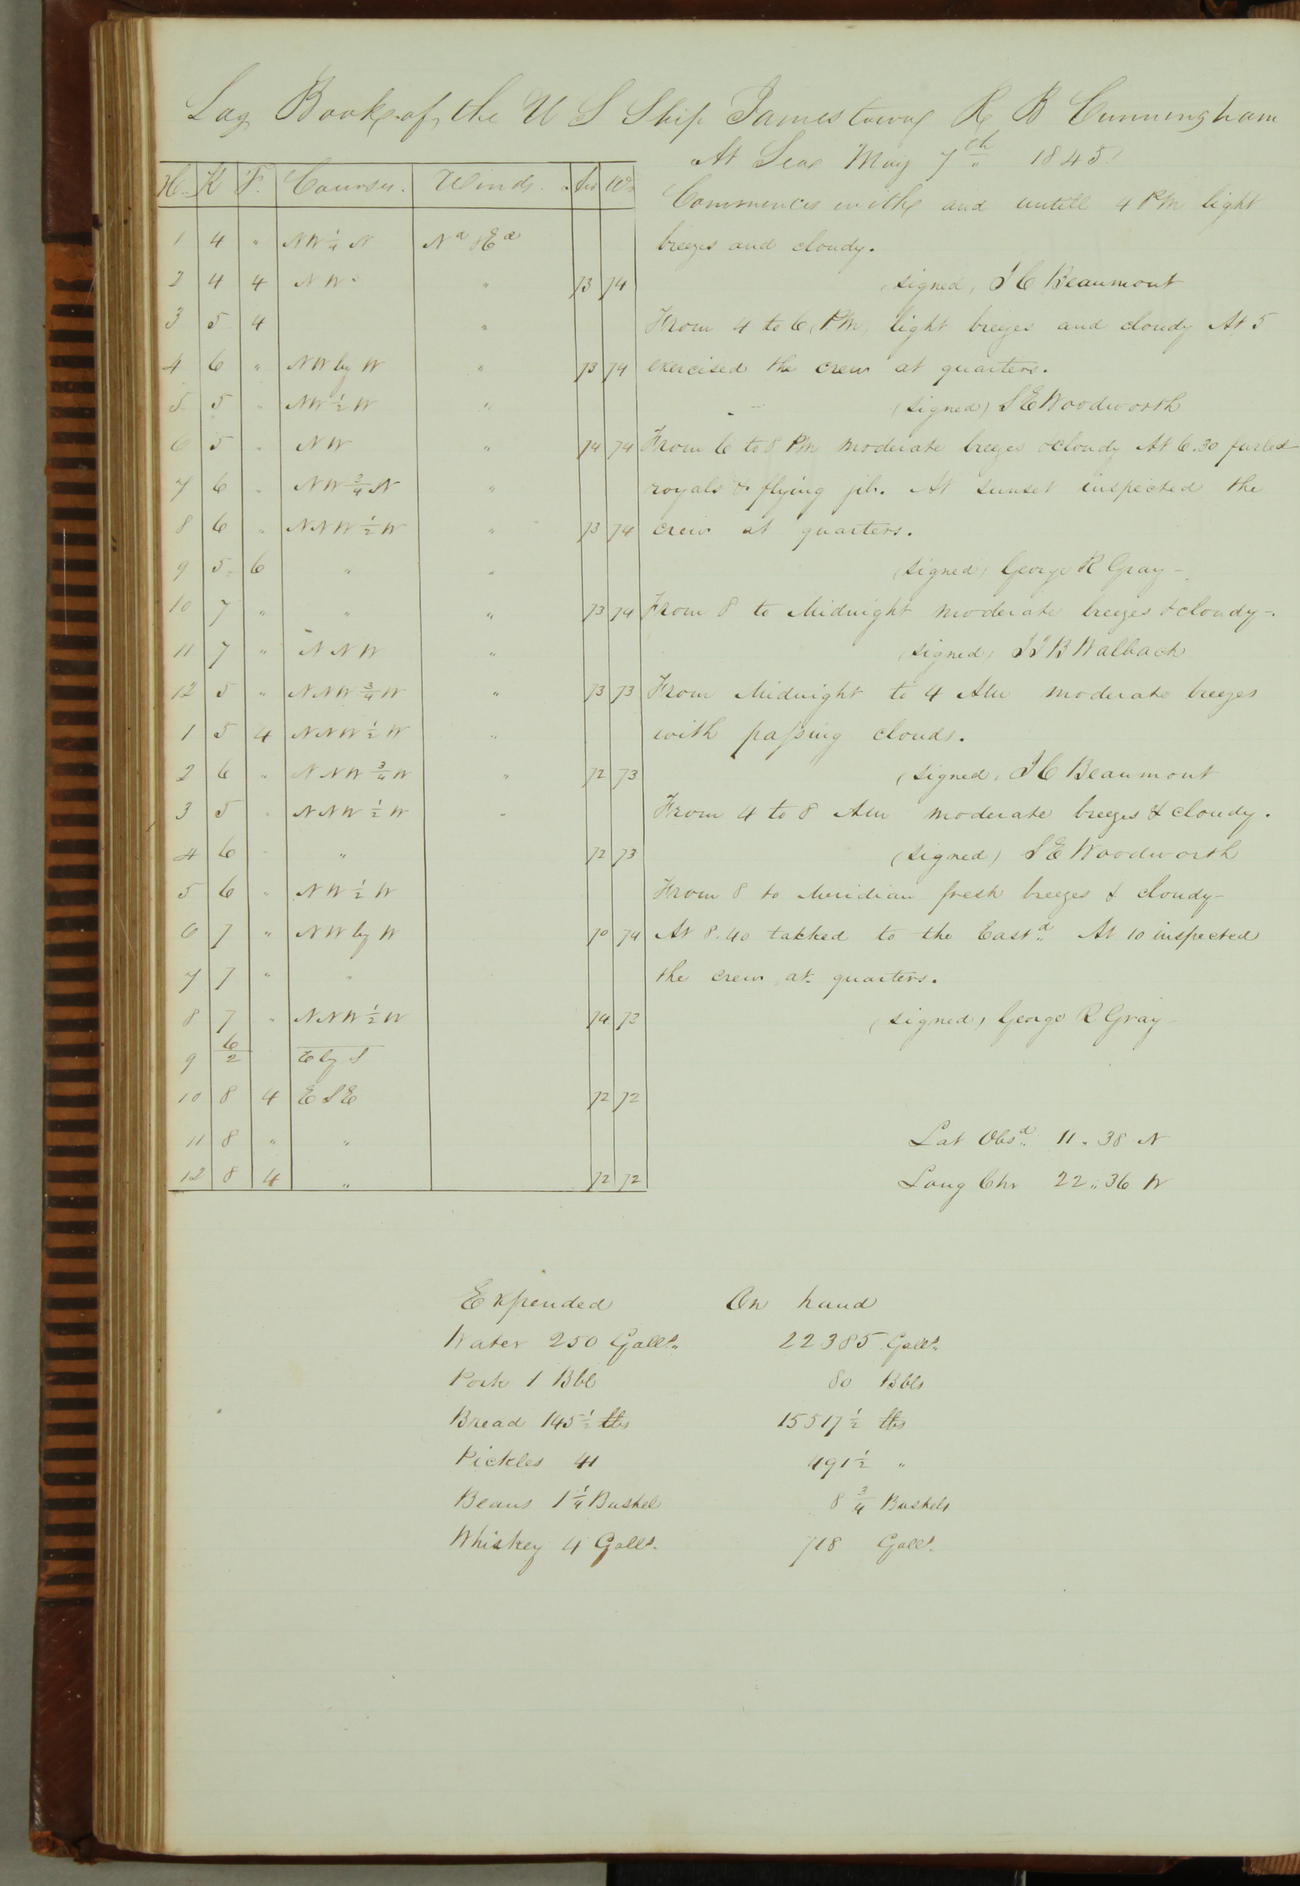 Log Book of the U S Ship Jamestown R B Cunningham
At Sea May 7th 1845
H. K F. Courses. Winds. Air Wr
Commences with and untill 4 PM light
1 4 " NW ¼ N Nd & Ed
breezes and cloudy.
2 4 4 NW " 73 74
(signed) J C Beaumont
3 5 4 "
From 4 to 6 PM, light breezes and cloudy At 5
4 6 " NW by W " 73 74
exercised the crew at quarters.
5 5 " NW ½ W "
(signed) S E Woodworth
6 5 " NW " 74 74
From 6 to 8 PM moderate breezes & cloudy At 6.30 furled
7 6 " NW ¾ N "
royals & flying jib. At sunset inspected the
8 6 " NNW ½ W " 73 74
crew at quarters.
9 5 6 " "
(signed) George R Gray
10 7 " " " 73 74
From 8 to Midnight moderate breezes & cloudy.
11 7 " NNW "
(signed) J J B Walbach
12 5 " NNW ¾ W " 73 73
From Midnight to 4 AM moderate breezes
1 5 4 NNW ½ W "
with passing clouds.
2 6 " NNW ¾ W " 72 73
(signed) J C Beaumont
3 5 " NNW ½ W "
From 4 to 8 AM moderate breezes & cloudy.
4 6 " 72 73
(signed) S E Woodworth
5 6 " NW ½ W
From 8 to Meridian fresh breezes & cloudy
6 7 " NW by W 70 74
At 8.40 tacked to the Eastd. At 10 inspected
7 7 " "
the crew at quarters.
8 7 " NNW ½ W 74 73
(signed) George R Gray
9 6/2 E by S
10 8 4 ESE 72 72
11 8 " "
Lat Obsd. 11.38 N
12 8 4 " 72 72
Long Chr 22.. 36 W
Expended On hand
Water 250 Galls. 22385 Galls.
Pork 1 Bbl 80 Bbls
Bread 145 ½ lbs 15517 ½ lbs
Pickles 41 491 ½ "
Beans 1 ¼ Bushel 8 ¾ Bushels
Whiskey 4 Galls. 718 Galls.